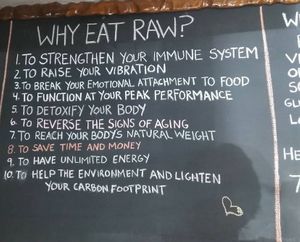 WHY EAT RAW?
1. TO STRENGTHEN YOUR IMMUNE SYSTEM
2. TO RAISE YOUR VIBRATION
3. TO BREAK YOUR EMOTIONAL ATTACHMENT TO FOOD
4. TO FUNCTION AT YOUR PEAK PERFORMANCE
5. TO DETOXIFY YOUR BODY
6. TO REVERSE THE SIGNS OF AGING
7. TO REACH YOUR BODY'S NATURAL WEIGHT
8. TO SAVE TIME AND MONEY
9. TO HAVE UNLIMITED ENERGY
10. TO HELP THE ENVIRONMENT AND LIGHTEN
YOUR CARBON FOOTPRINT